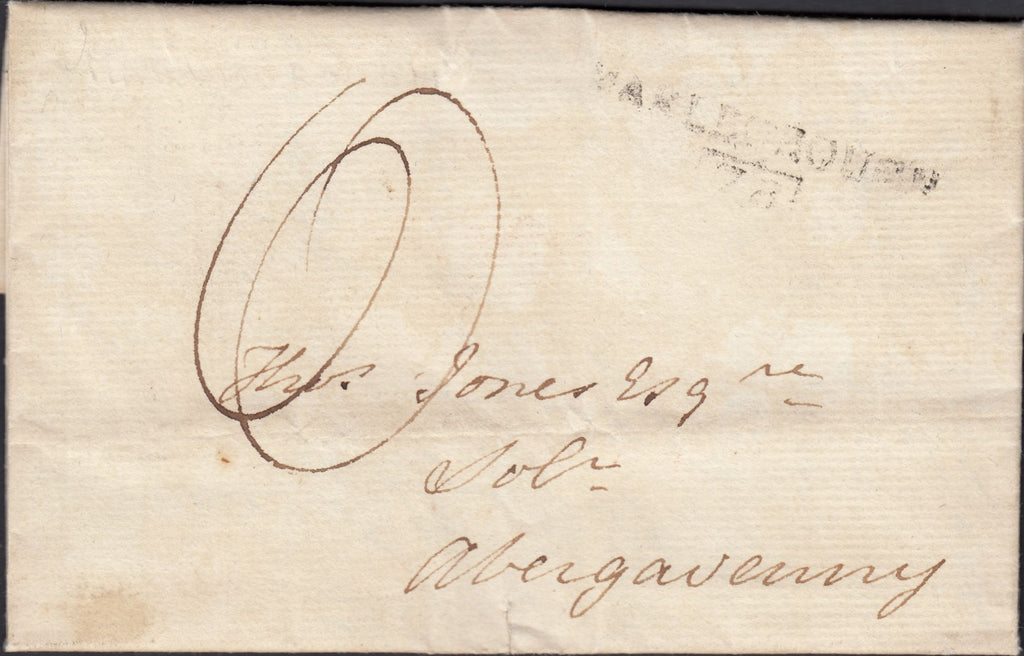 MARLBOROUGH
76
Thos. Jones Esqre
Solr
Abergavenny